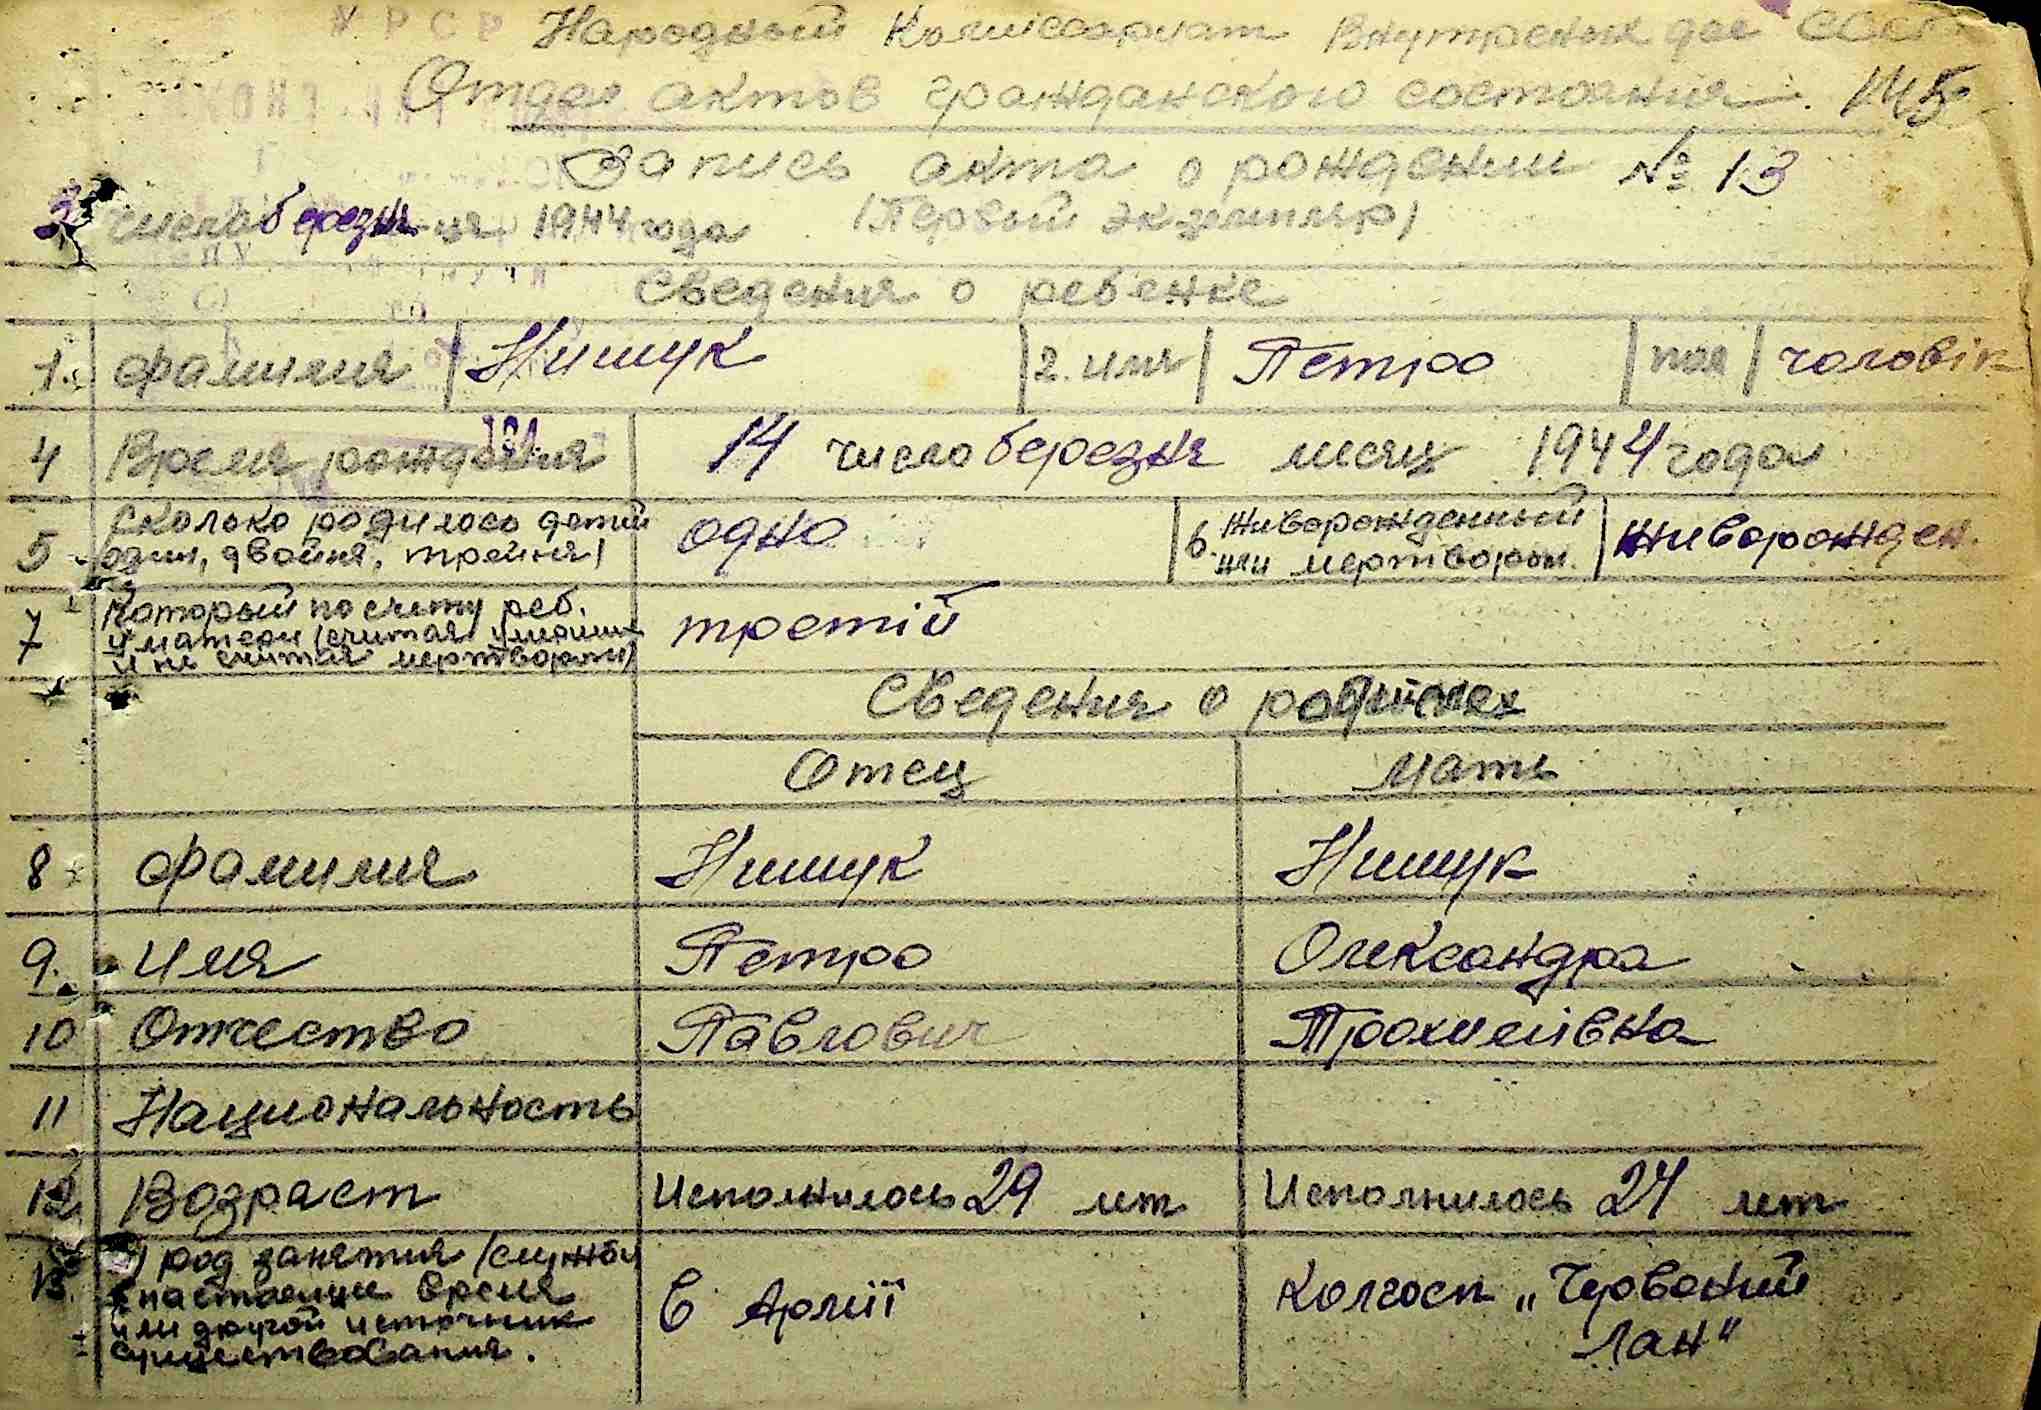 Народный Комиссариат Внутрених дел СССР
Отдел актов гражданского состояния. 145
Запись акта о рождении № 13
числа березня м-ця 1944 года (Первый экземпляр)
Сведения о ребенке
1. Фамилия Нищук 2. имя Петро пол чоловік
4 Время рождения 14 число березня місяц 1944 года
5 Сколько родилось детей (один, двойня, тройня) одно 6. Живорожденный или мертворож. живорожден.
7 Который по счету реб. у матери (считая умерш. и не считая мертворож) третій
Сведения о родителях
Отец Мать
8 Фамилия Нищук Нищук
9. Имя Петро Олександра
10 Отчество Павлович Трохимівна
11 Национальность
12 Возраст Исполнилось 29 лет Исполнилось 24 лет
13. род занятия (службы в настоящее время или другой источник существования. в Армії Колгосп „Червоний Лан"